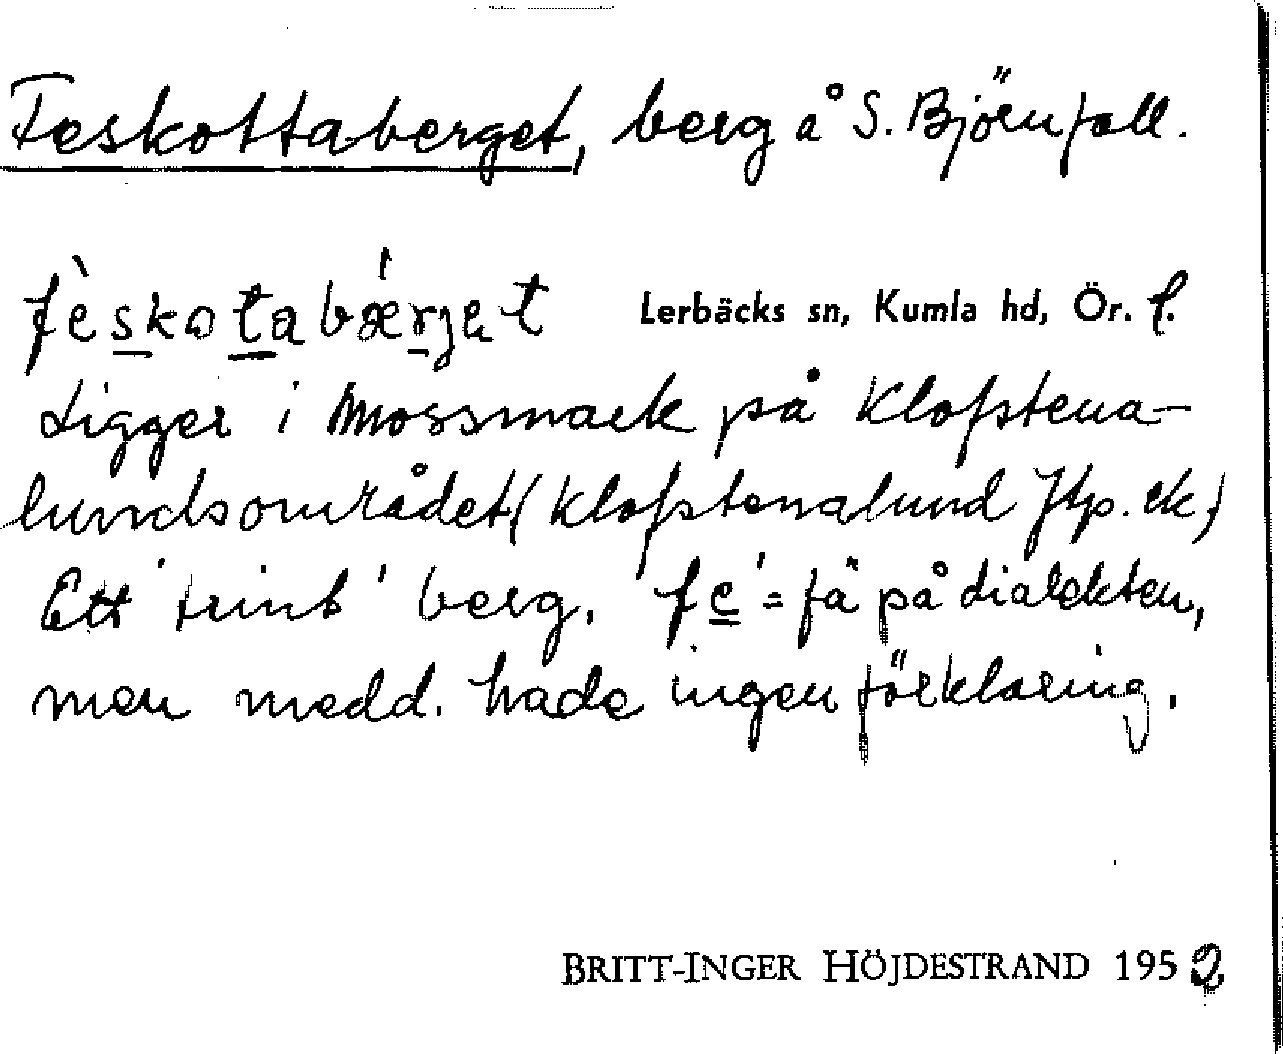 Feskottaberget, berg å S. Björnfall.
fèskotabǽrjet Lerbäcks sn, Kumla hd, Ör. l.
Ligger i mossmark på Klofstena-
lundsområdet (Klofstenalund Jtp. ek.)
Ett 'trint' berg. 'fe' = fä på dialekten,
men medd. hade ingen förklaring.
BRITT-INGER HÖJDESTRAND 1952